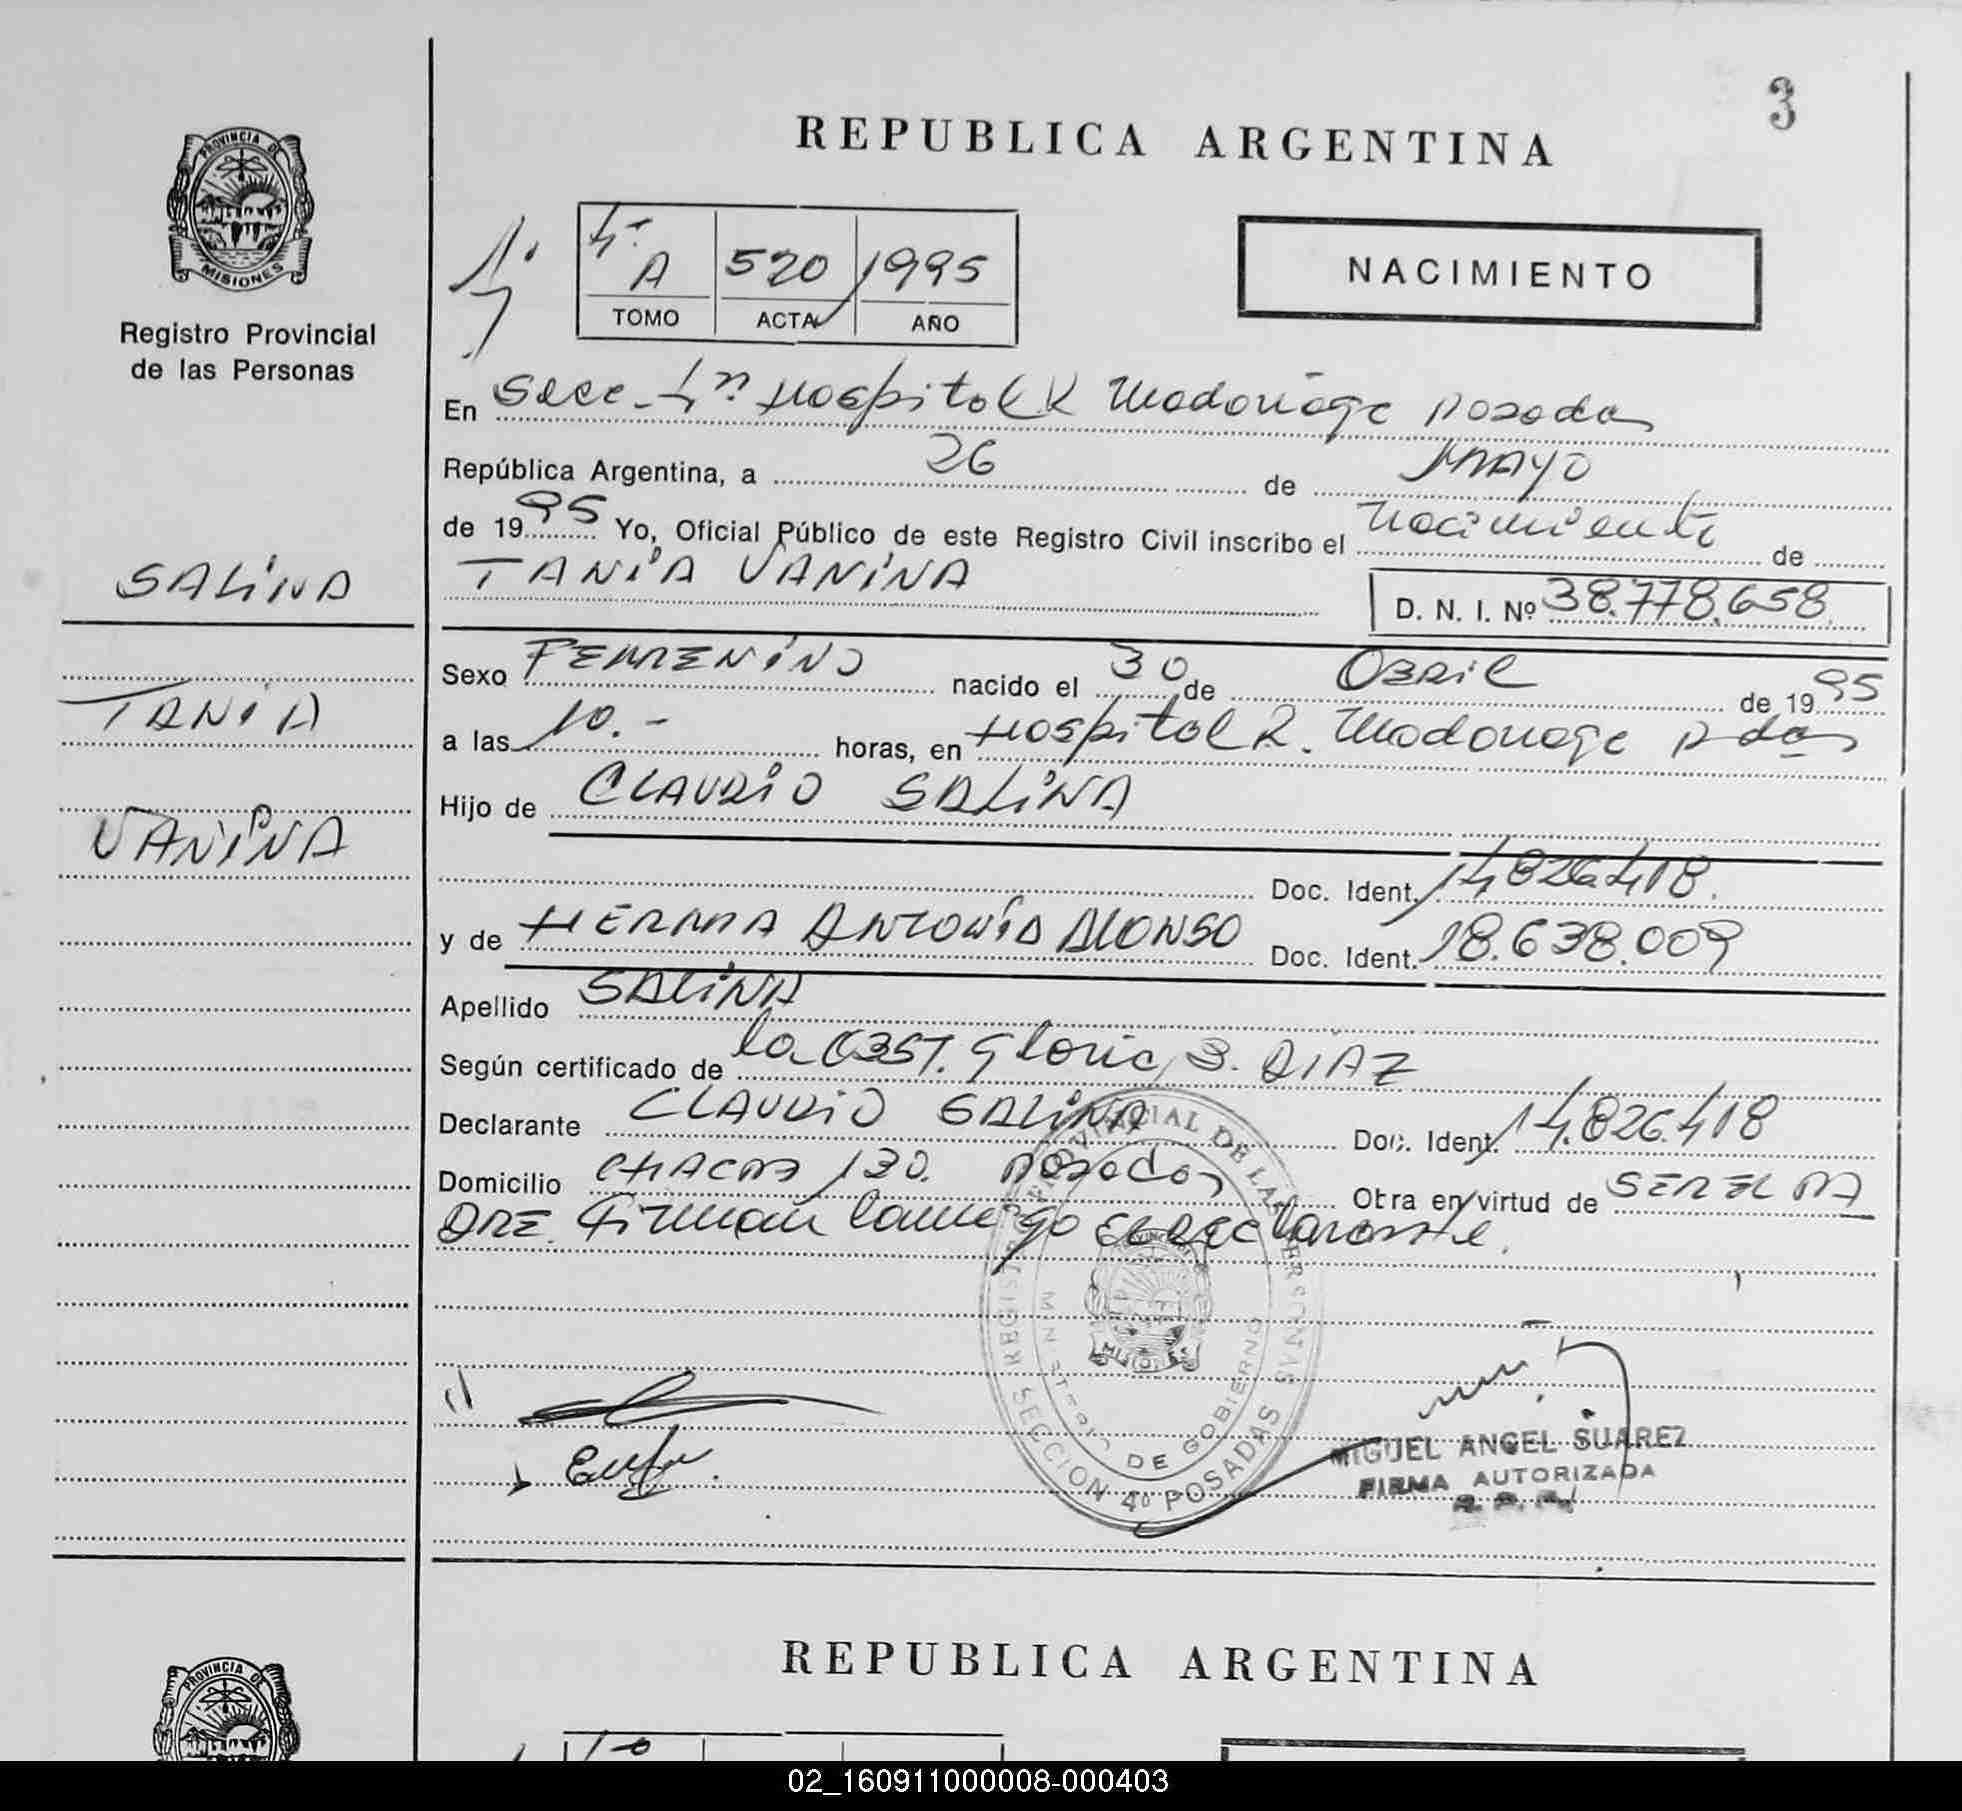 3
REPUBLICA ARGENTINA
PROVINCIA DE
MISIONES
Registro Provincial
de las Personas
4ª A 520 1995
TOMO ACTA AÑO
NACIMIENTO
En Secc. 4ª Hospital R Madariaga Posadas
República Argentina, a 26 de MAYO
de 1995 Yo, Oficial Público de este Registro Civil inscribo el nacimiento de
TANIA VANINA
D. N. I. Nº 38.778.658
SALINA
TANIA
VANINA
Sexo FEMENINO nacido el 30 de ABRIL de 1995
a las 10.- horas, en Hospital R. Madariaga Pdas
Hijo de CLAUDIO SALINA
Doc. Ident. 14.826.418.
y de HERMA ANTONIA ALONSO Doc. Ident. 18.638.009
Apellido SALINA
Según certificado de la OBST. Gloria B. DIAZ
Declarante CLAUDIO SALINA Doc. Ident. 14.826.418
Domicilio CHACRA 130. Posadas Otra en virtud de SER EL PA
DRE. Firman conmigo el declarante.
REGISTRO PROVINCIAL DE LAS PERSONAS
MINISTERIO DE GOBIERNO
MISIONES
SECCION 4º POSADAS
MIGUEL ANGEL SUAREZ
FIRMA AUTORIZADA
R. P. P.
REPUBLICA ARGENTINA
PROVINCIA DE
02_160911000008-000403